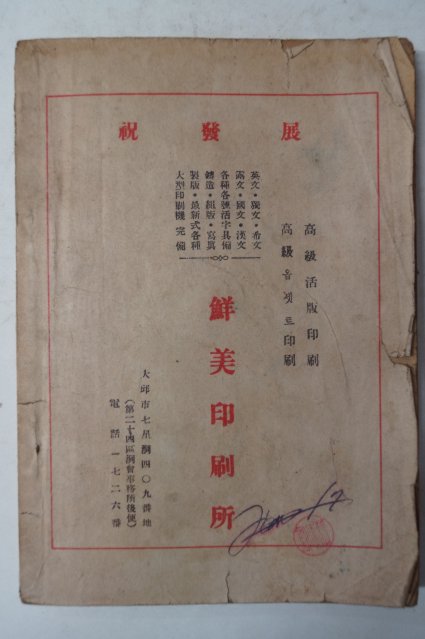 祝發展
高級活版印刷
高級옵셋트印刷
英文・獨文・希文
露文・國文・漢文
各種各號活字具備
鑄造・組版・寫眞
製版・最新式各種
大型印刷機完備
鮮美印刷所
大邱市七星洞四〇九番地
(第二十四區洞會事務所後便)
電話一七二六番